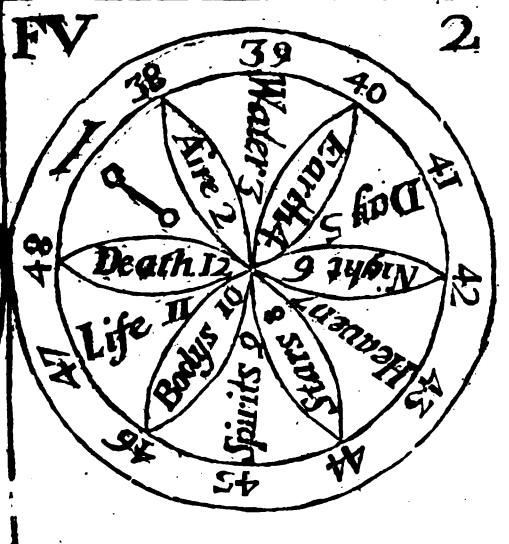 FV 2
38
39
40
41
42
43
44
45
46
47
48
Aire 2
Water 3
Earth 4
Day 5
Night 6
Heaven 7
Stars 8
Spirits 9
Bodys 10
Life 11
Death 12